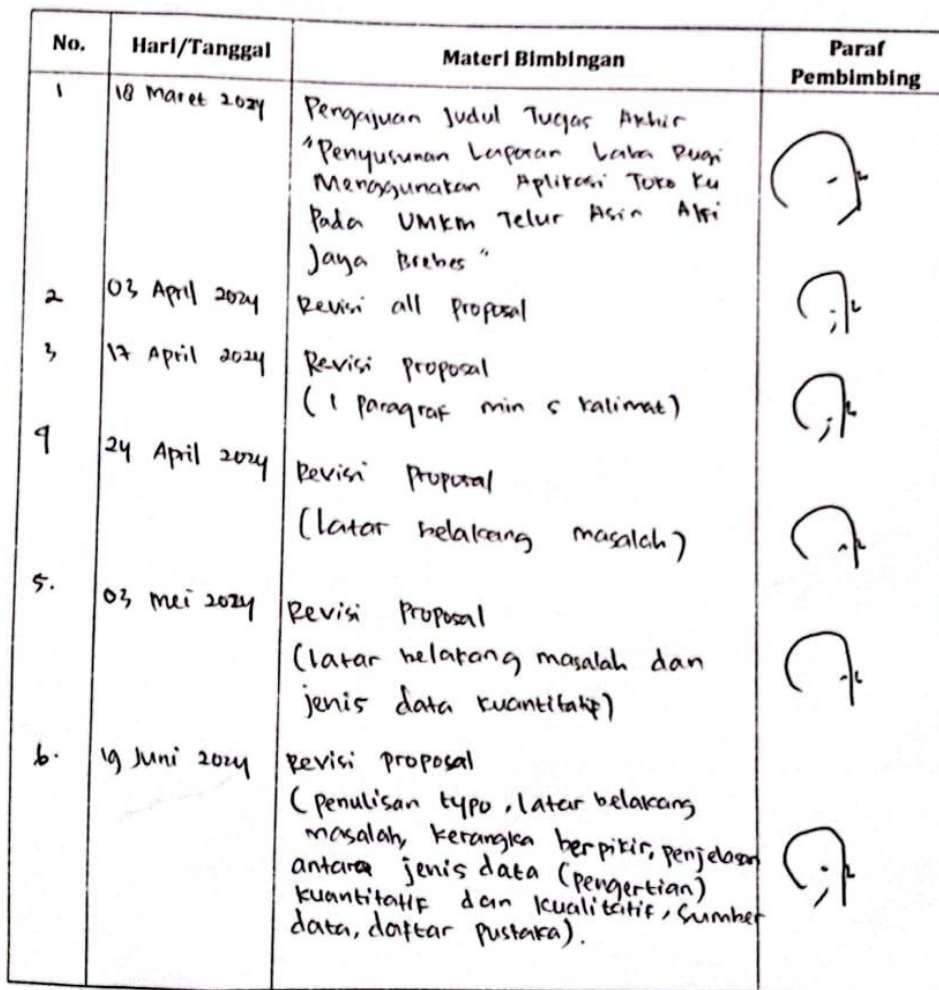 No. Hari/Tanggal Materi Bimbingan Paraf Pembimbing
1 18 Maret 2024 Pengajuan Judul Tugas Akhir
"Penyusunan Laporan Laba Rugi
Menggunakan Aplikasi Toko Ku
Pada UMKM Telur Asin Alfi
Jaya Brebes"
2 03 April 2024 Revisi all proposal
3 17 April 2024 Revisi proposal
(1 paragraf min 5 kalimat)
4 24 April 2024 Revisi Proposal
(latar belakang masalah)
5. 03 mei 2024 Revisi Proposal
(latar belakang masalah dan
jenis data kuantitatif)
6. 19 Juni 2024 Revisi proposal
(penulisan typo, latar belakang
masalah, kerangka berpikir, penjelasan
antara jenis data (pengertian)
kuantitatif dan kualitatif, sumber
data, daftar pustaka).